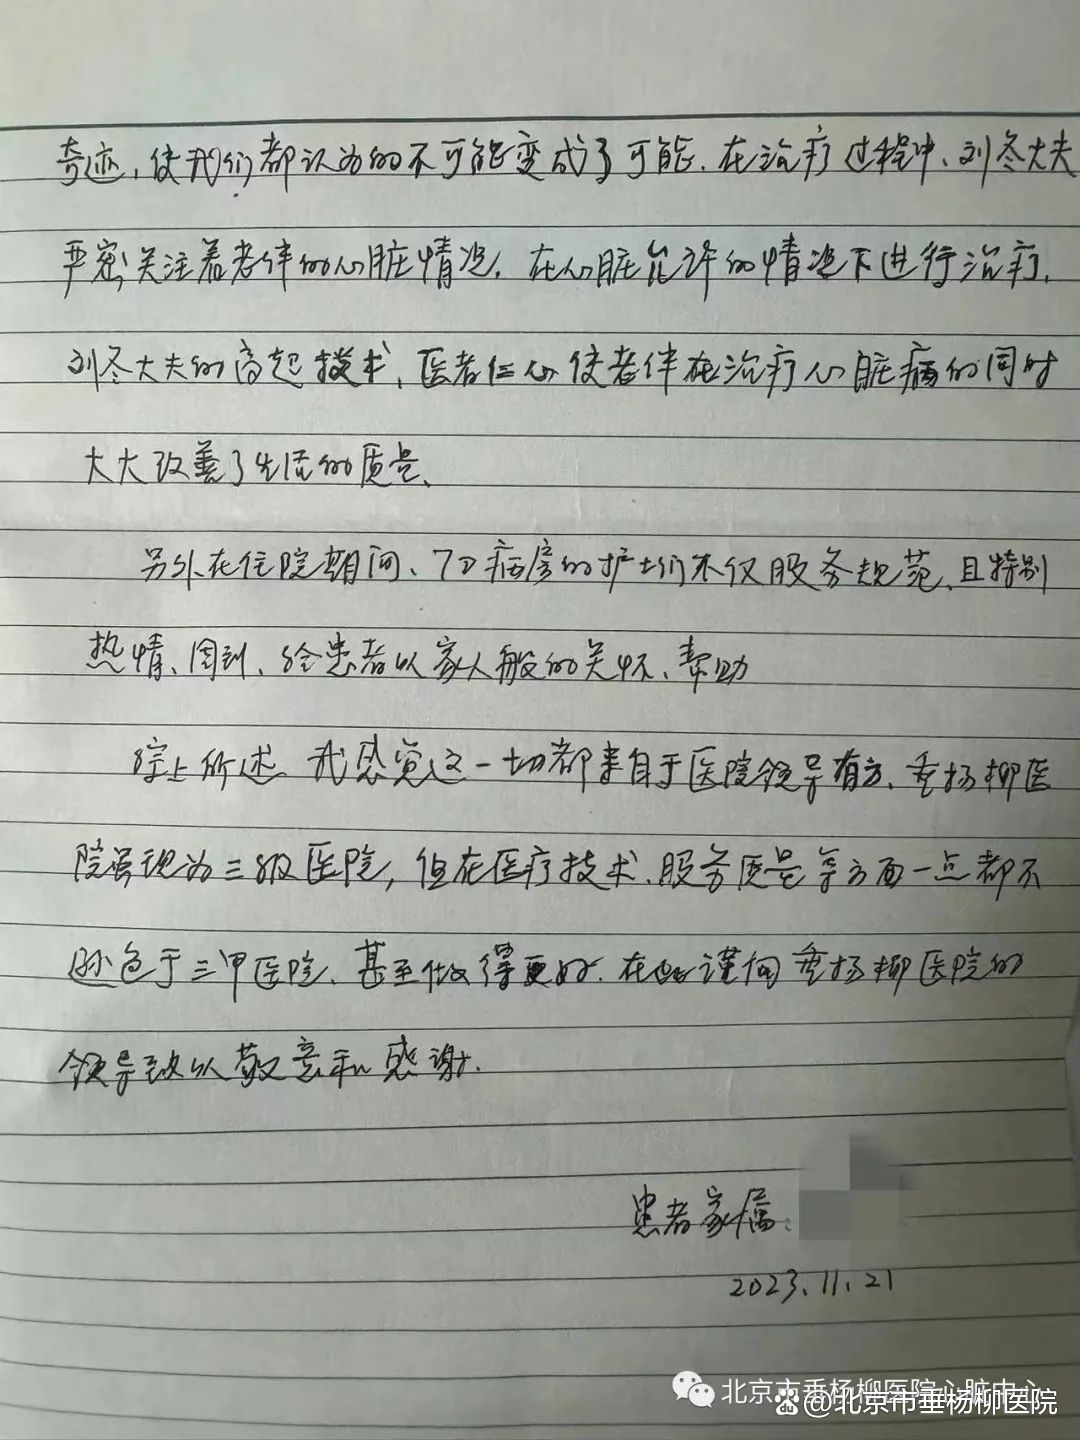 奇迹,使我们都认为的不可能变成了可能.在治疗过程中、刘冬大夫
严密关注着老伴的心脏情况,在心脏允许的情况下进行治疗.
刘冬大夫的高超技术、医者仁心使老伴在治疗心脏病的同时
大大改善了生活的质量、
另外在住院期间、7D病房的护士们不仅服务规范、且特别
热情、周到、给患者以家人般的关怀、帮助
综上所述 我感觉这一切都来自于医院领导有方、垂杨柳医
院虽现为三级医院,但在医疗技术、服务质量等方面一点都不
逊色于三甲医院、甚至做得更好.在此谨向垂杨柳医院的
领导致以敬意和感谢.
患者家属:
2023.11.21
北京市垂杨柳医院心脏中心
@北京市垂杨柳医院